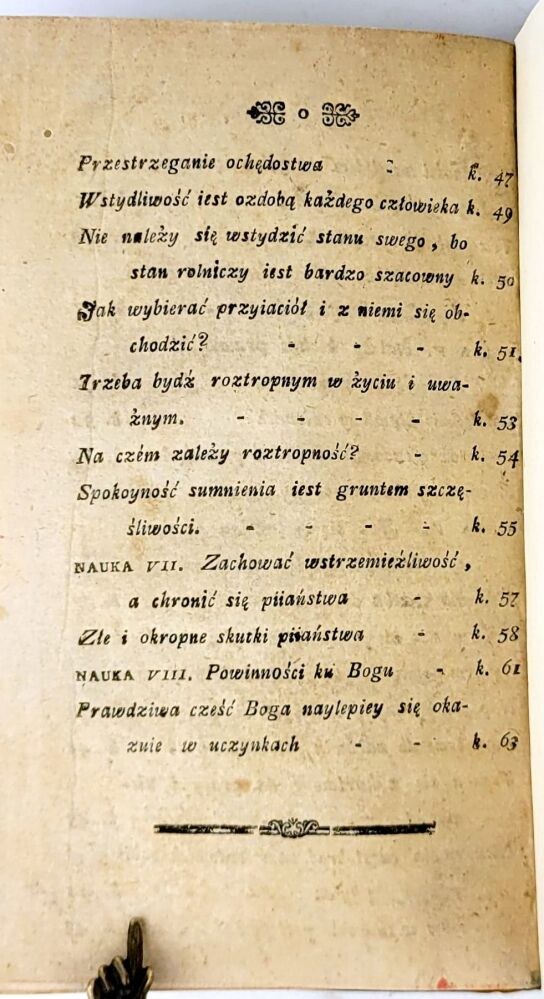 o
Przestrzeganie ochędostwa - k. 47
Wstydliwość iest ozdobą każdego człowieka k. 49
Nie należy się wstydzić stanu swego, bo
stan rolniczy iest bardzo szacowny k. 50
Jak wybierać przyiaciół i z niemi się ob-
chodzić? - - - k. 51.
Trzeba bydź roztropnym w życiu i uwa-
żnym. - - - - k. 53
Na czém zależy roztropność? - k. 54
Spokoyność sumnienia iest gruntem szczę-
śliwości. - - - - k. 55
NAUKA VII. Zachować wstrzemieźliwość,
a chronić się piiaństwa - k. 57
Złe i okropne skutki piiaństwa - k. 58
NAUKA VIII. Powinności ku Bogu - k. 61
Prawdziwa cześć Boga naylepiey się oka-
zuie w uczynkach - - k. 63